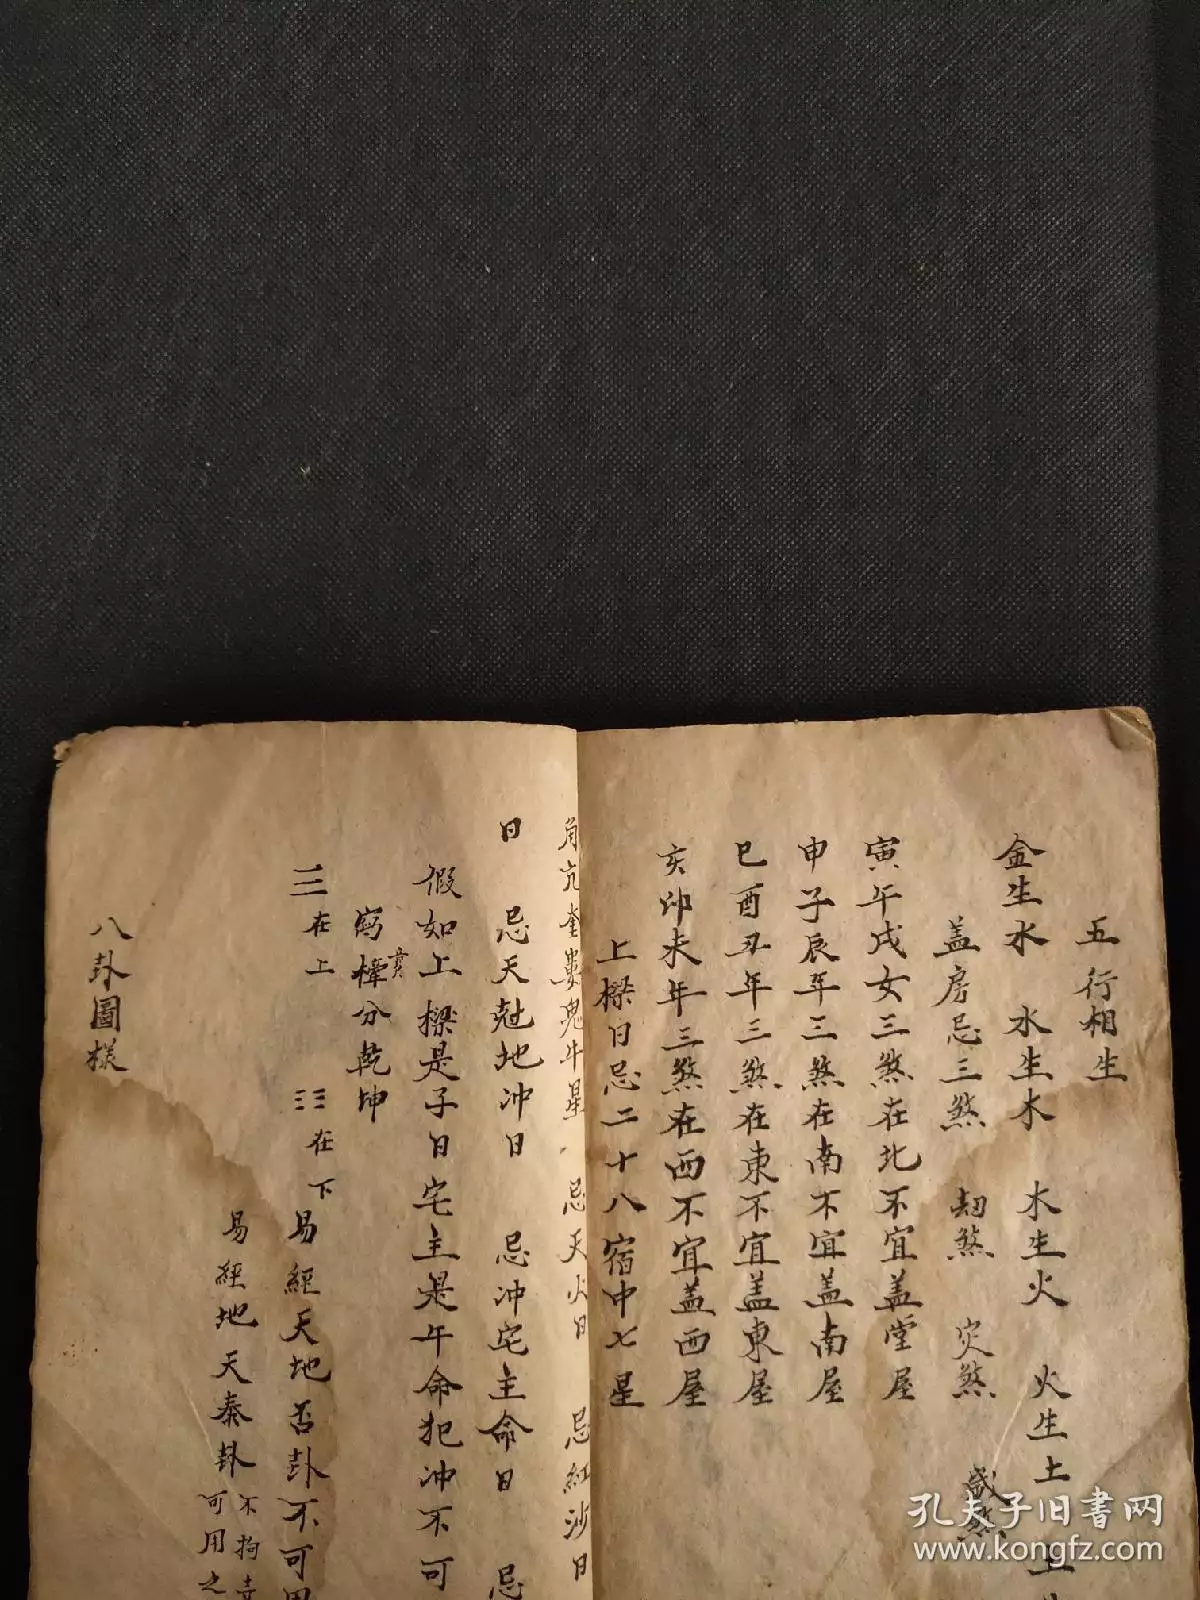 五行相生
金生水 水生木 木生火 火生土 土生
盖房忌三煞 刼煞 灾煞 歲煞
寅午戌女三煞在北不宜盖堂屋
申子辰年三煞在南不宜盖南屋
巳酉丑年三煞在東不宜盖東屋
亥卯未年三煞在西不宜盖西屋
上樑日忌二十八宿中七星
角亢奎婁鬼牛星 忌天火日 忌紅沙日
日 忌天尅地冲日 忌冲宅主命日 忌
假如上樑是子日宅主是午命犯冲不可
寫樑分乾坤
☰在上 ☷在下 易經天地否卦不可用
易經地天泰卦 不拘
可用之
八卦圖樣
孔夫子旧书网
www.kongfz.com